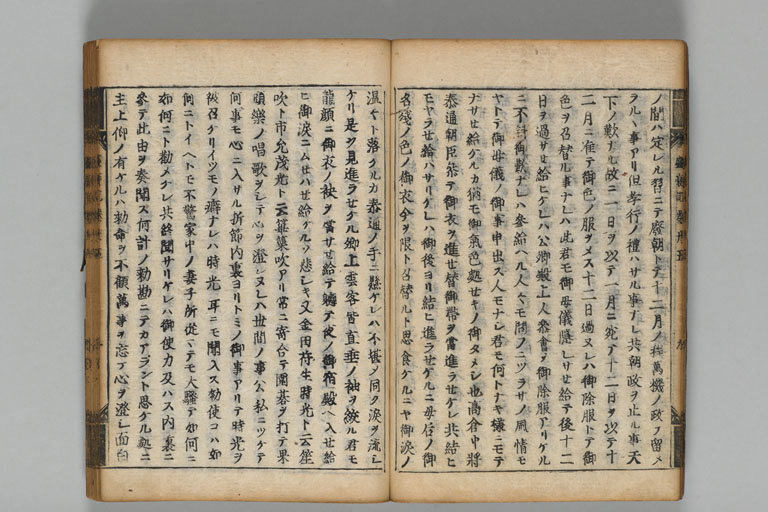 ノ間ハ定レル習ニテ廢朝トテ十二月ノ程萬機ノ政ヲ留メ
ラルヽ事アリ但孝行ノ禮ハサル事ナレ共朝政ヲ止ル事天
下ノ歎ナル故ニ一日ヲ以テ一月ニ宛テ十二日ヲ以テ十
二月ニ准テ御色ノ服ヲメス十二日過ヌレハ御除服トテ御
色ヲ召替ル事ナレハ此君モ御母儀隱レサせ給テ後十二
日ヲ過サせ給ヒケレハ公卿殿上人參會ヲ御除服アリケル
ニ不斜御歎ナレハ參給ヘル人々モ問ノミツラサノ風情モ
ヤトテ御母儀ノ御事申出ス人モナシ君モ何トナキ樣ニモテ
ナサせ給ケルカ猶モ御氣色處せキノ御タメシ也高倉中將
泰通朝臣參テ御衣ヲ進せ替御帶ヲ當進ラサせケレ共結ヒ
モヤラせ給ハサリケレハ御後ヨリ結ヒ進ラせケルニ母后ノ御
名殘ノ色ノ御衣今ヲ限ト召替ルト思食ケルニヤ御涙ノ
温ヤト落クルカ泰通ノ手ニ懸ケレハ不堪メ同ク涙ヲ流シ
ケリ是ヲ見進ラせケル卿上雲客皆直垂ノ袖ヲ絞ル君モ
龍顏ニ御衣ノ袂ヲ當サせ給テ軈テ夜ノ御宿殿ヘ入せ給
ヒ御涙ニムせハせ給ケルソ悲シキ又金田府生時光ト云笙
吹ト市允茂光ト云篳篥吹アリ常ニ寄合テ圍碁ヲ打テ果
頭樂ノ唱歌ヲシテ心ヲ澄シヌレハ世間ノ事公私ニツケテ
何事モ心ニ入サル折節内裏ヨリトミノ御事アリテ時光ヲ
被召ケリイツモノ癖ナレハ時光耳ニモ聞入ス勅使コハ如
何ニトイヘトモ不驚家中ノ妻子所從マテモ大騷テ如何ニ
如何ニト勸メケレ共終聞サリケレハ御使力及ハス内裏ニ
參テ此由ヲ奏聞ス何計ノ勅勘ニテカアラント思ケル處ニ
主上仰ノ有ケルハ勅命ヲ不顧萬事ヲ忘テ心ヲ澄シ面白